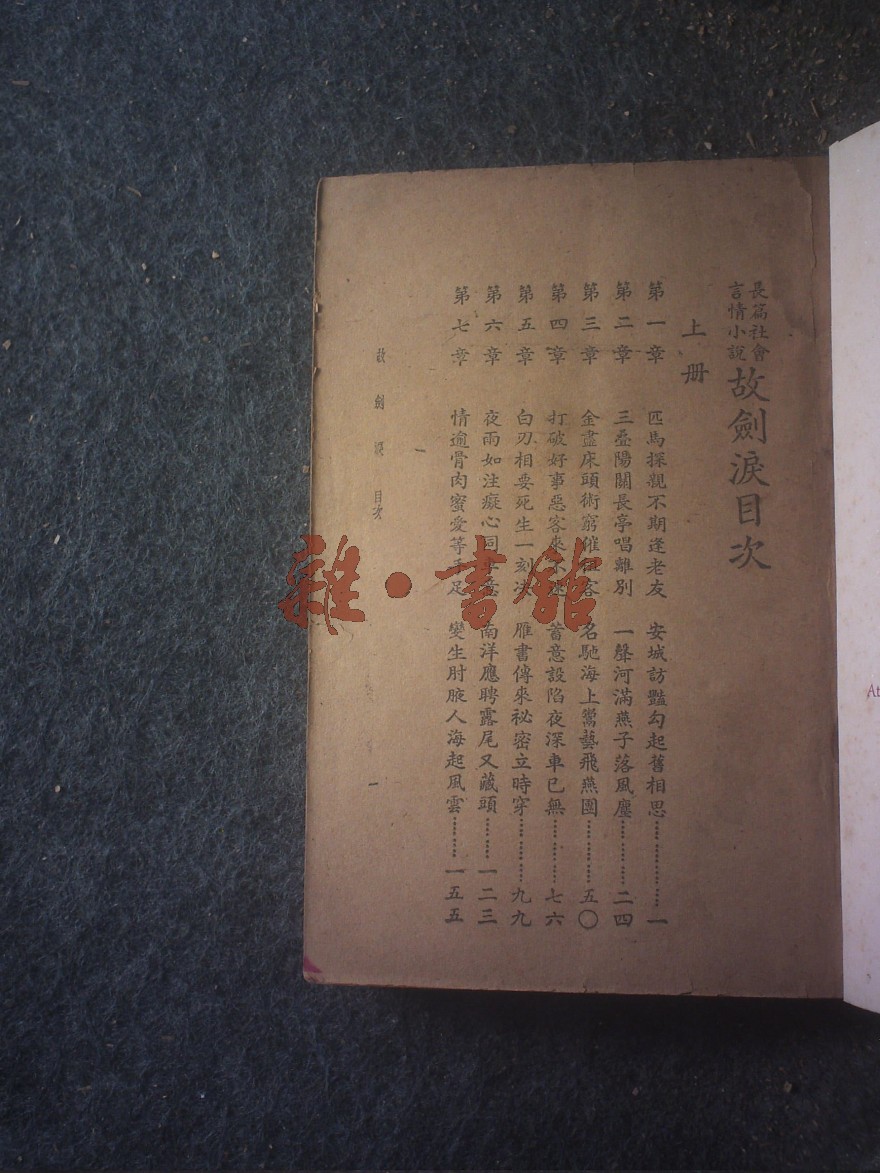 長篇社會
言情小說
故劍淚目次
上册
第一章 匹馬探親不期逢老友 安城訪豔勾起舊相思……………一
第二章 三疊陽關長亭唱離別 一聲河滿燕子落風塵…………二四
第三章 金盡床頭術窮催租客 名馳海上鶯藝飛燕團…………五〇
第四章 打破好事惡客來 蓄意設陷夜深車已無…………七六
第五章 白刃相要死生一刻決 雁書傳來祕密立時穿…………九九
第六章 夜雨如注癡心同 意 南洋應聘露尾又藏頭………一二三
第七章 情逾骨肉蜜愛等手足 變生肘腋人海起風雲………一五五
故劍淚 目次
一
雜·書館
At